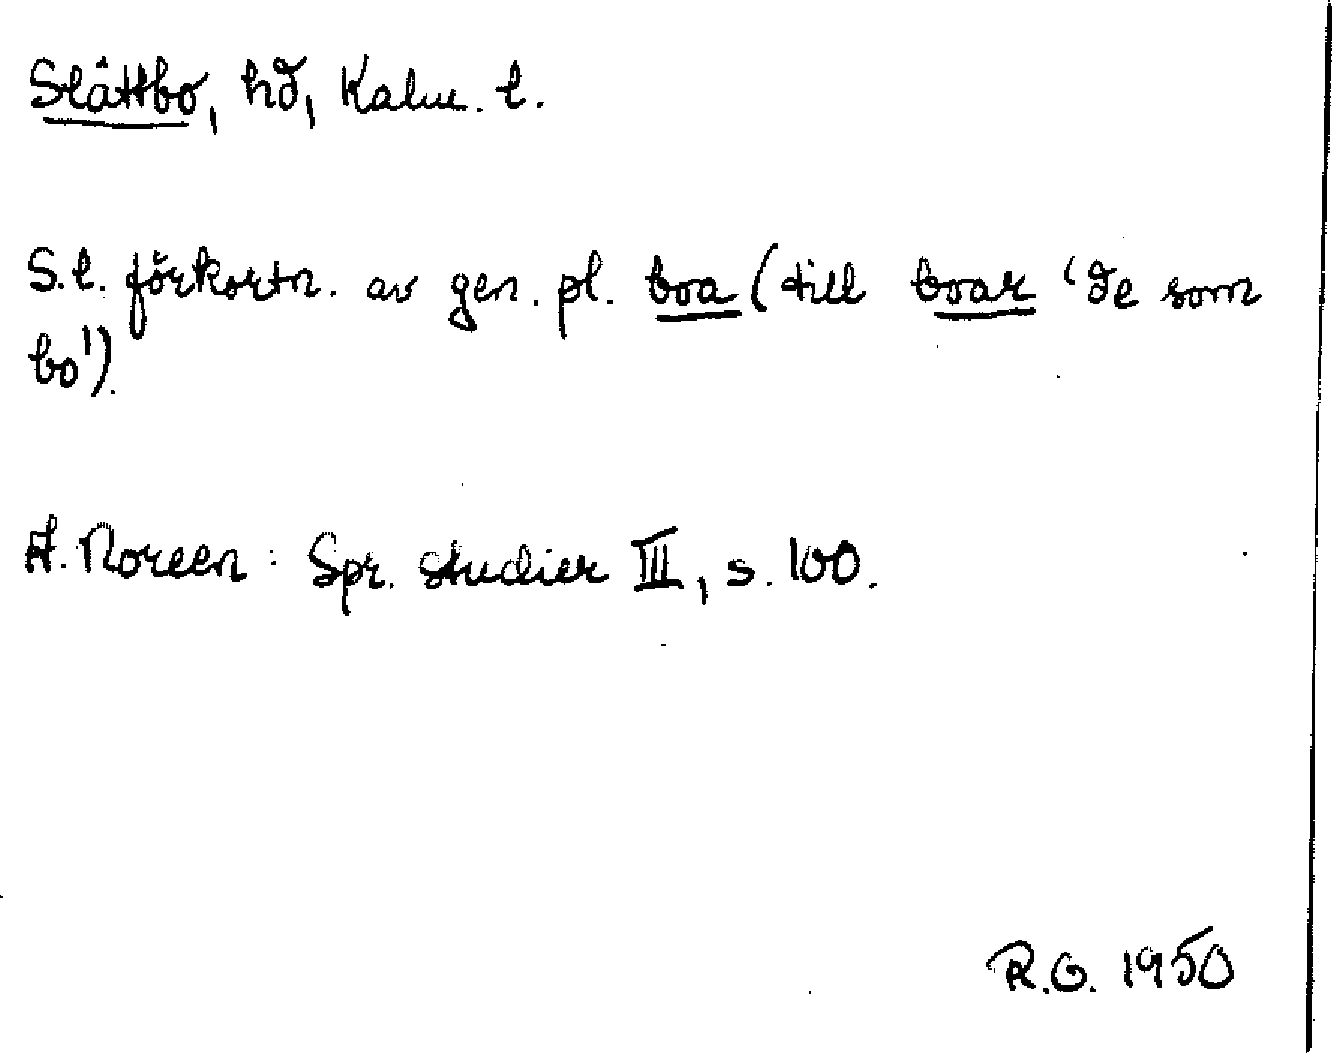 Slättbo, hd, Kalm. l.
S.l. förkortn. av gen. pl. boa (till boar 'de som
bo').
A. Noreen: Spr. studier III, s. 100.
R.O. 1950